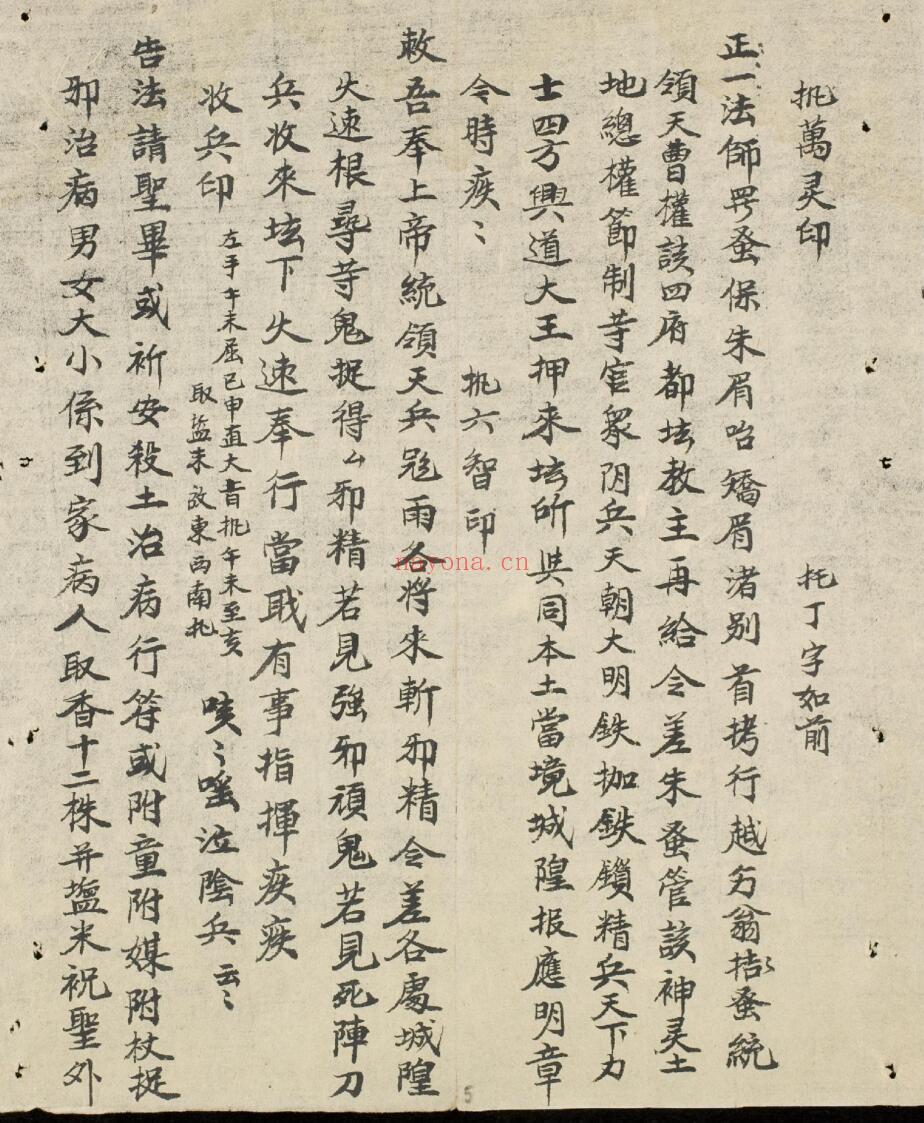 執萬灵印　托丁字如前
正一法師咢蚤保朱眉咍矯眉渚别首拷行越另翁括蚤統
領天曹權該四府都坛教主再給令差朱蚤管該神灵土
地總權節制䓁官衆阴兵天朝大明鉄枷鉄鎖精兵天下力
士四方興道大王押来坛所共同本土當境城隍报應明章
令時疾〻　執六智印
敕吾奉上帝統領天兵 雨各将来斬邪精令差各處城隍
火速根尋䓁鬼捉得厶邪精若見強邪頑鬼若見死陣刀
兵收来坛下火速奉行當職有事指揮疾疾
收兵印　左手午未屈已申直大昔執午未至亥
取盐未放東西南北　唊〻嗂泣陰兵云〻
告法請聖畢或祈安殺土治病行符或附童附媒附杖捉
邪治病男女大小係到家病人取香十二株并盐米祝聖外
nayona.cn
5